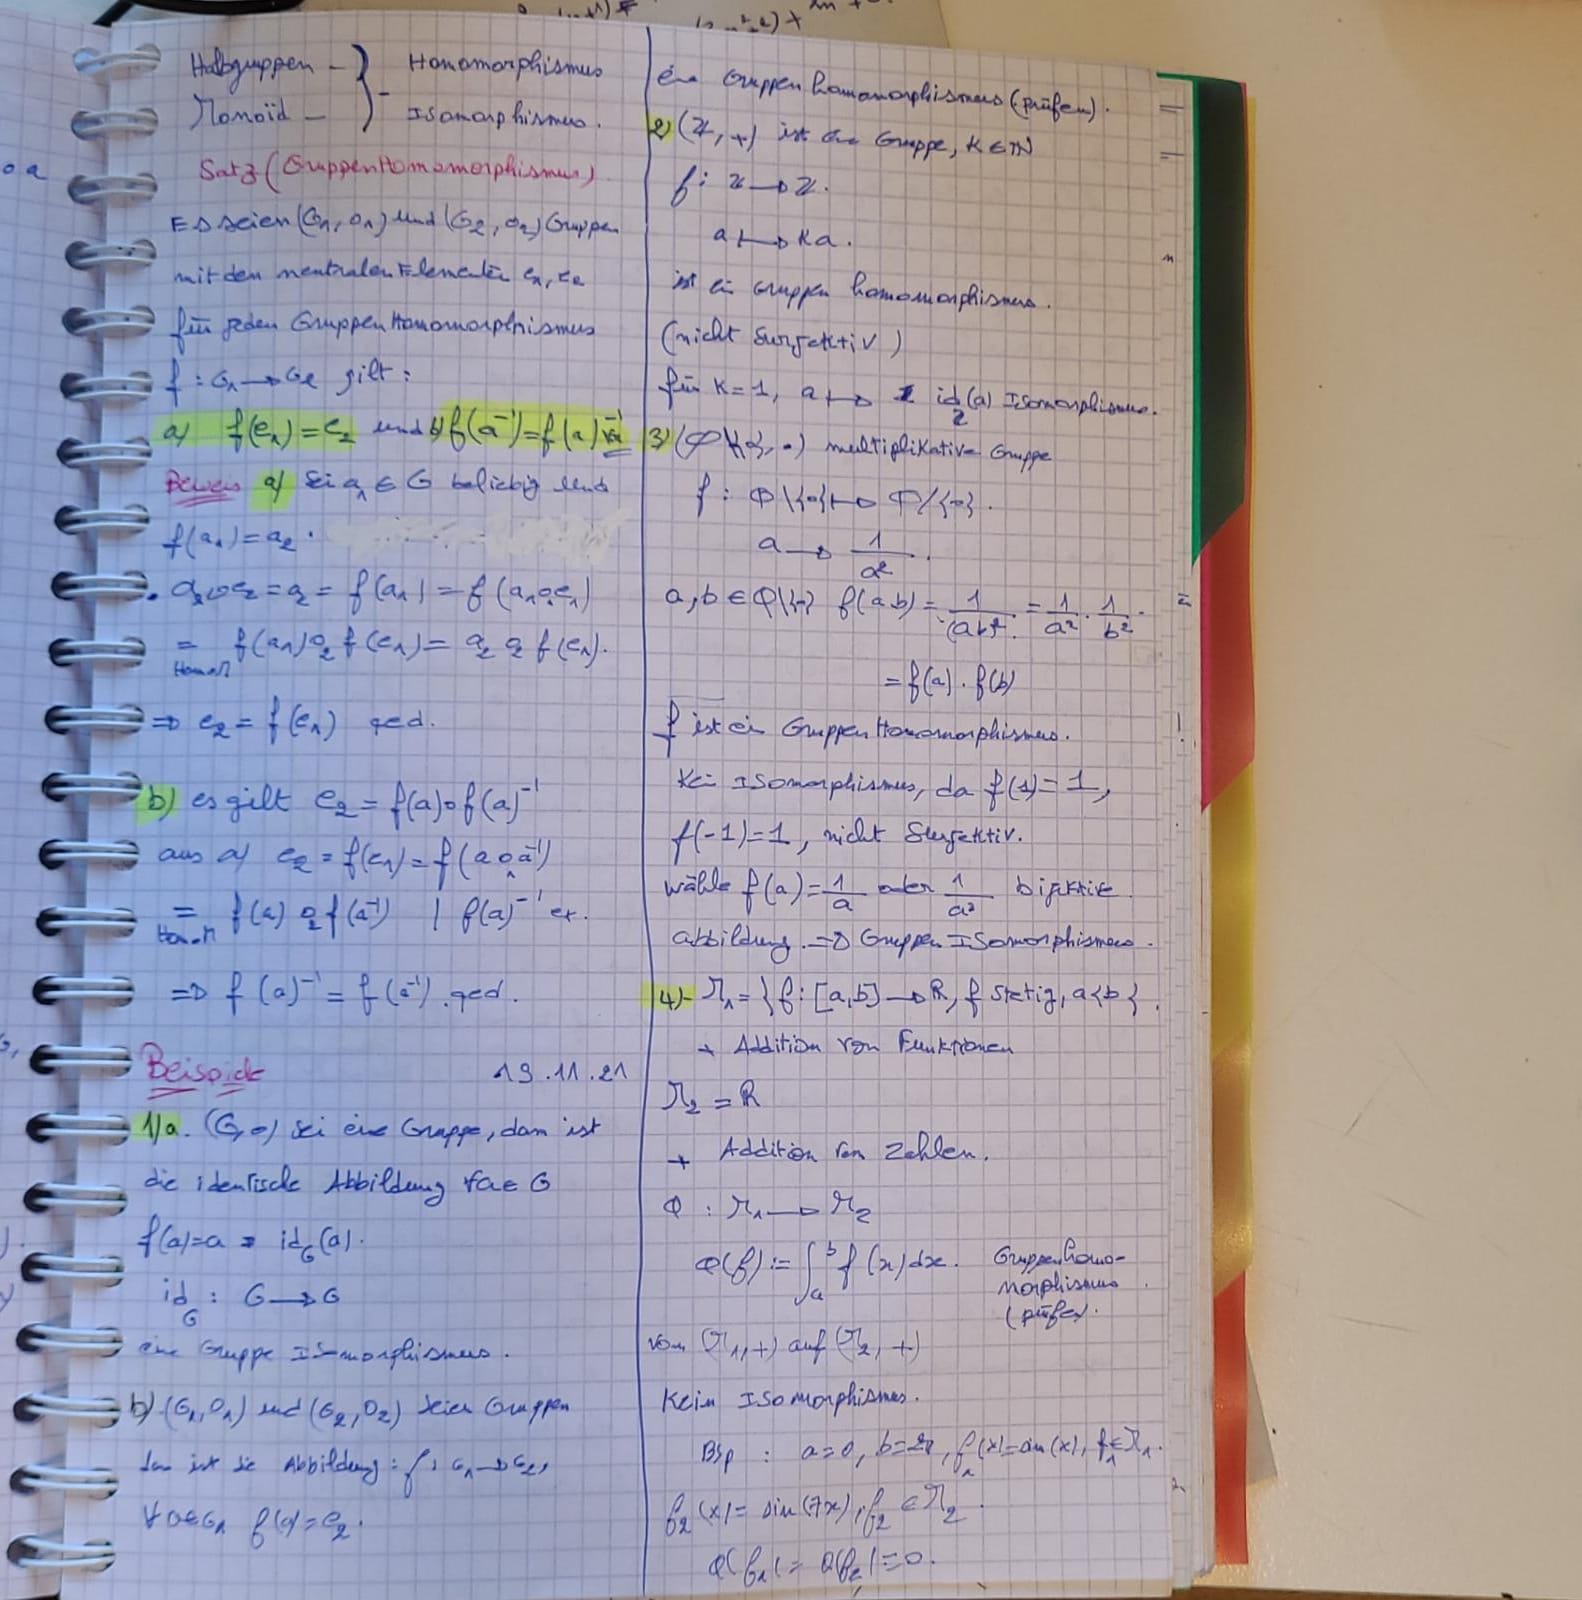 Halbgruppen - } Homomorphismus
Monoïd - } - Isomorphismus.
Satz (GruppenHomomorphismus)
Es seien (G₁, o₁) und (G₂, o₂) Gruppen
mit den neutralen Elementen e₁, e₂
für jeden GruppenHomomorphismus
f : G₁ → G₂ gilt :
a) f(e₁) = e₂ und b) f(a⁻¹) = f(a)⁻¹ ∀a
Beweis a) Sei a₁ ∈ G beliebig und
f(a₁) = a₂ .
a₂ o₂ e₂ = a₂ = f(a₁) = f(a₁ o₁ e₁)
= f(a₁) o₂ f(e₁) = a₂ o₂ f(e₁).
Hom
⇒ e₂ = f(e₁) qed.
b) es gilt e₂ = f(a) o f(a)⁻¹
aus a) e₂ = f(e₁) = f(a o₁ a⁻¹)
= f(a) o₂ f(a⁻¹) | f(a)⁻¹ ex.
Hom
⇒ f(a)⁻¹ = f(a⁻¹). qed.
Beispiele 19.11.21
1)a. (G, o) sei eine Gruppe, dann ist
die identische Abbildung ∀a ∈ G
f(a)=a = id_G(a).
id_G : G → G
eine Gruppe Isomorphismus.
b) (G₁, o₁) und (G₂, o₂) seien Gruppen
dann ist die Abbildung : f : G₁ → G₂,
∀a∈G₁ f(a) = e₂.
ein Gruppenhomomorphismus (prüfen).
2) (ℤ, +) ist eine Gruppe, K ∈ ℕ
f : ℤ → ℤ.
a ↦ Ka.
ist ein Gruppenhomomorphismus.
(nicht Surjektiv)
für K=1, a ↦ id_ℤ(a) Isomorphismus.
3) (ℚ\{0}, •) multiplikative Gruppe
f : ℚ\{0} ↦ ℚ/{0}.
a → 1/a².
a, b ∈ ℚ\{0} f(ab) = 1/(ab)² = 1/a² · 1/b².
= f(a) . f(b)
f ist ein GruppenHomomorphismus.
Kein Isomorphismus, da f(1) = 1,
f(-1)=1, nicht Surjektiv.
wähle f(a) = 1/a oder 1/a³ bijektive
abbildung. ⇒ Gruppen Isomorphismus.
4)- M₁ = { f : [a,b] → ℝ, f stetig, a<b }.
+ Addition von Funktionen
M₂ = ℝ
+ Addition von Zahlen.
Φ : M₁ → M₂
Φ(f) := ∫ₐᵇ f(x)dx. Gruppenhomo-
morphismus
(prüfen).
von (M₁, +) auf (M₂, +)
Kein Isomorphismus.
Bsp : a=0, b=2π, f₁(x)=sin(x), f₁∈M₁.
f₂(x) = sin(7x), f₂ ∈ M₂.
Φ(f₁) = Φ(f₂) = 0.